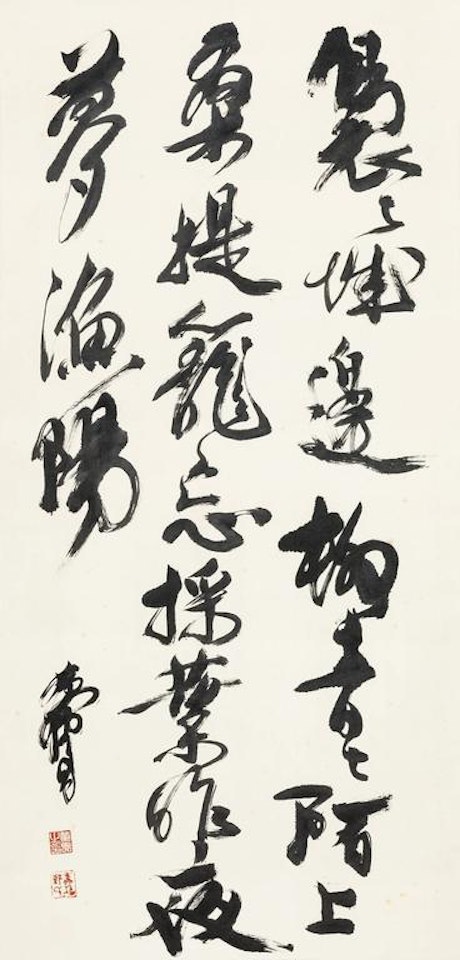 裊〻城邊柳青〻陌上
桑提籠忘採葉昨夜
夢漁陽